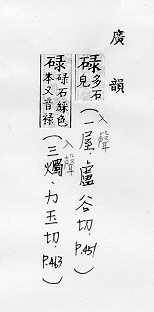 廣韻
碌 多石皃（入聲 一屋．盧谷切．P.451）
碌 碌石綵色本又音祿（入聲 三燭．力玉切．P.463）